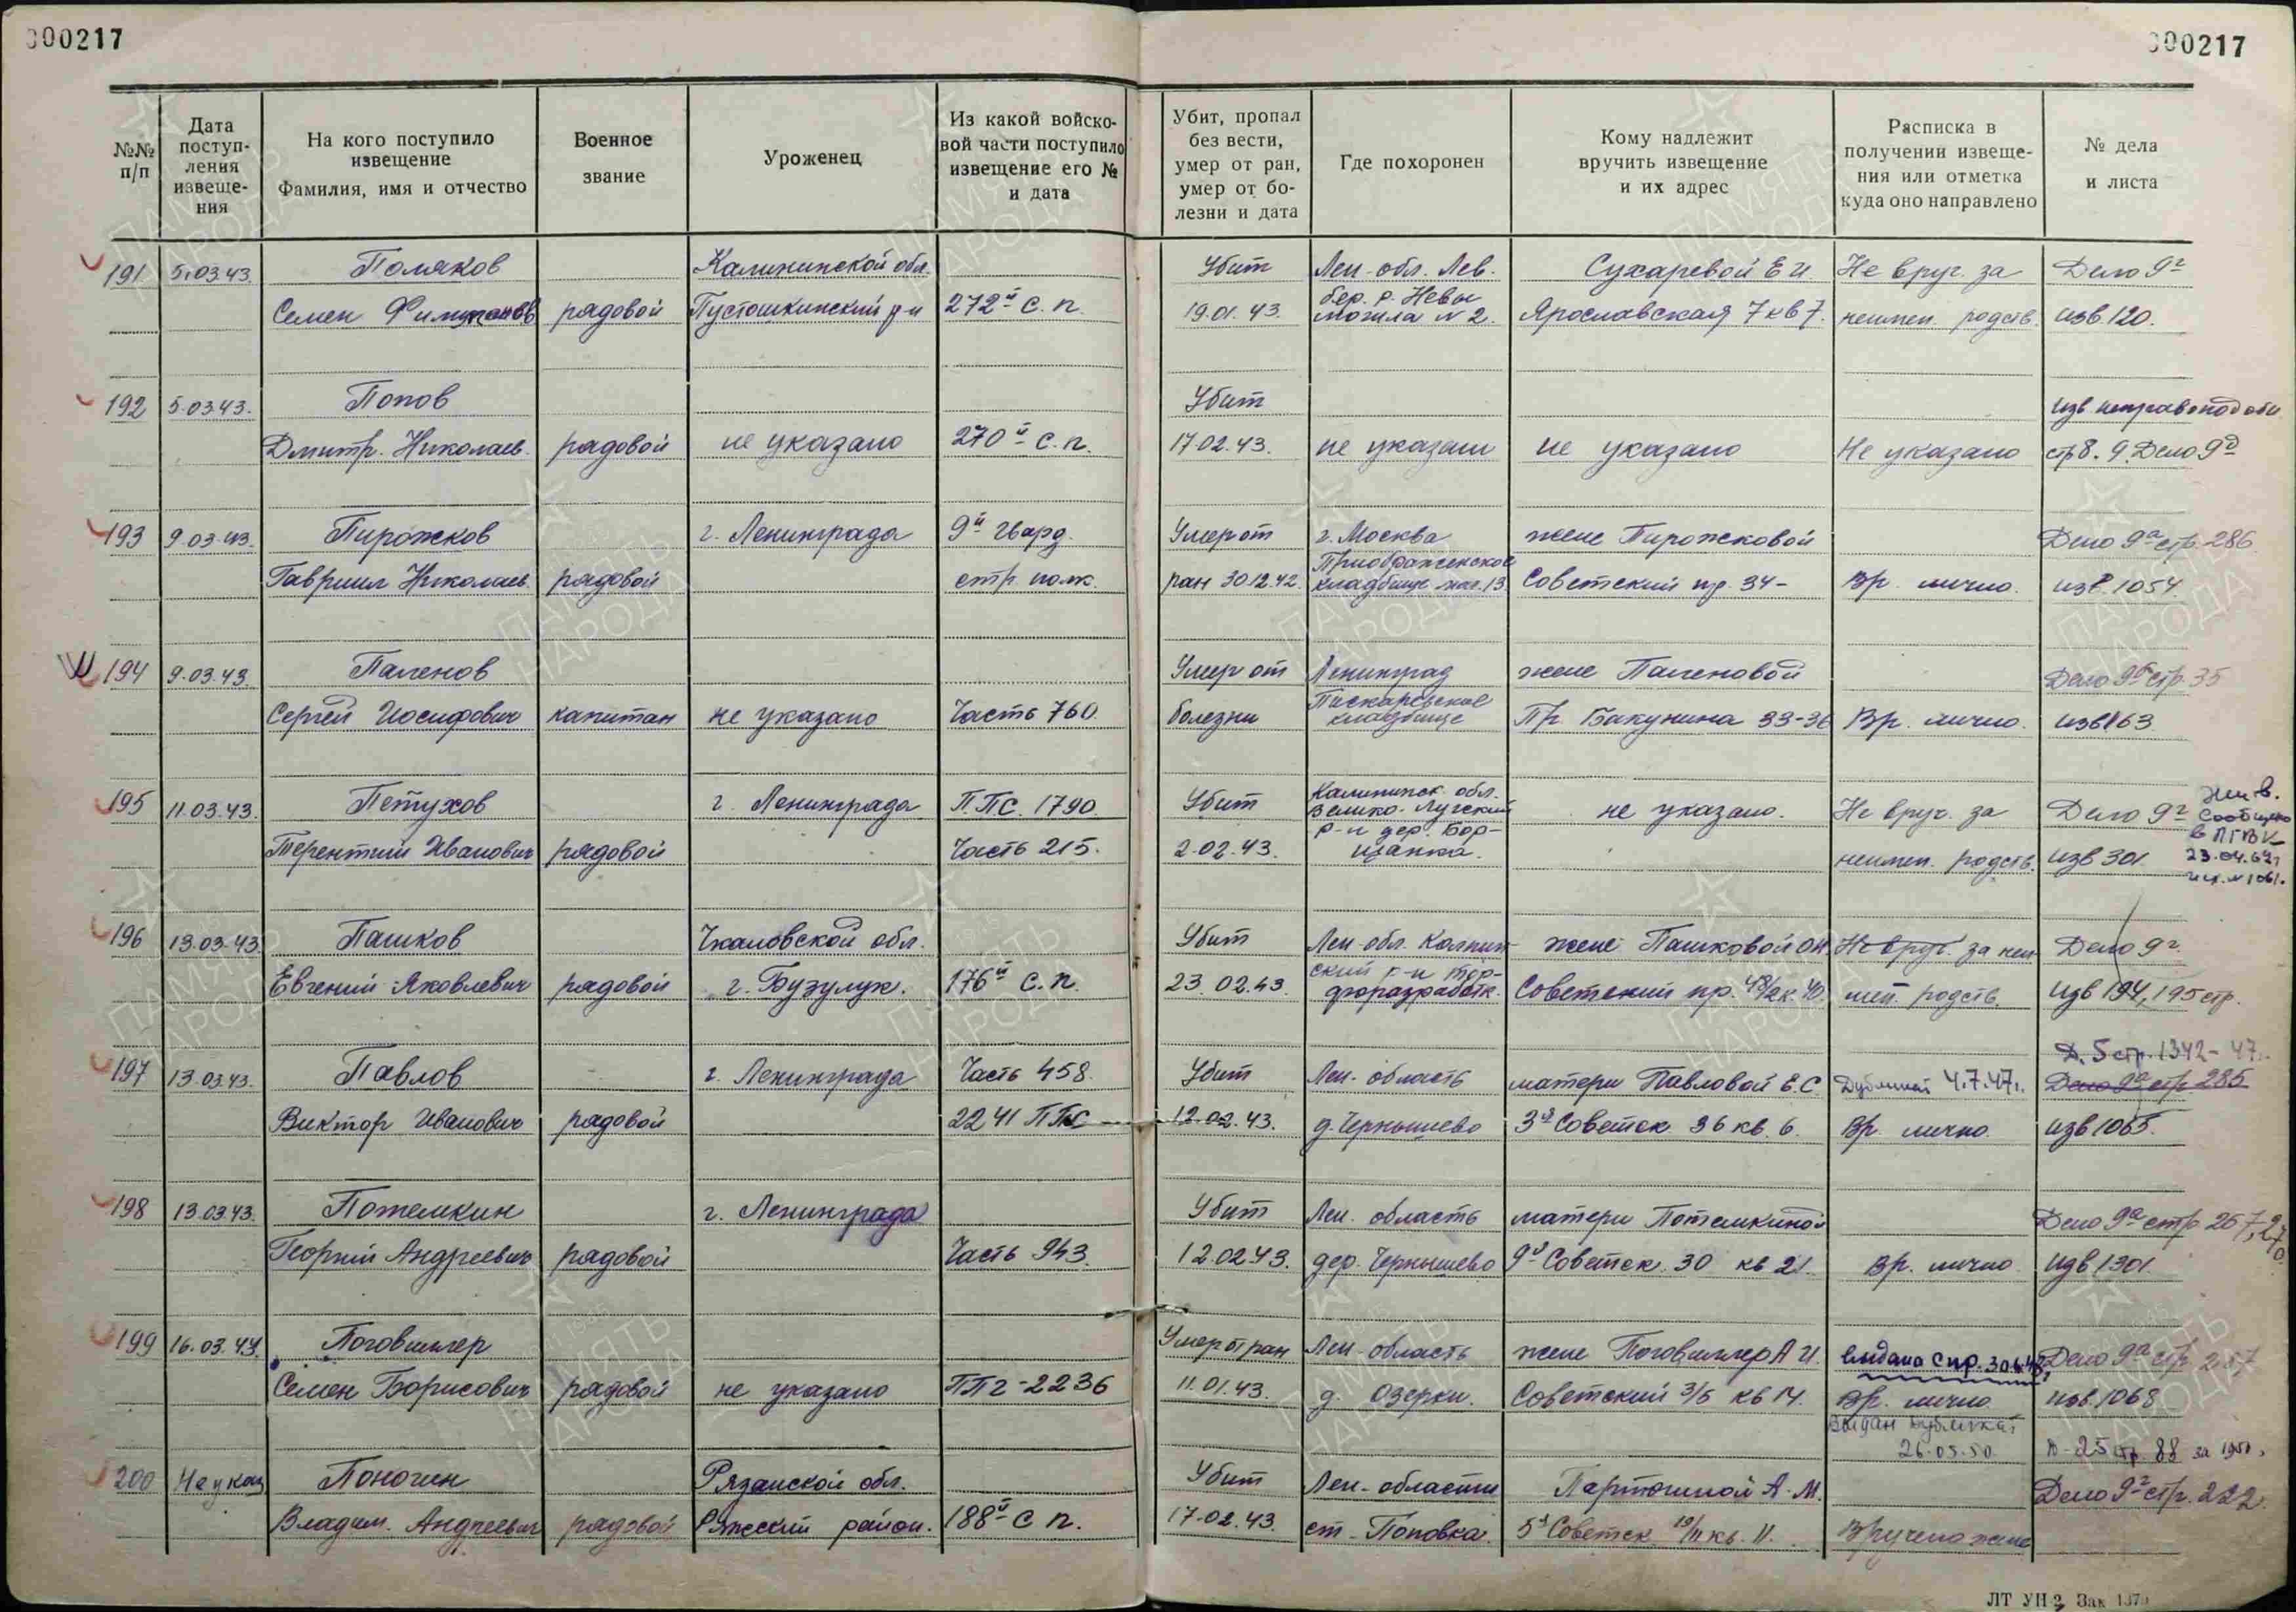 000217
000217
№№ п/п
Дата поступ-
ления извеще-
ния
На кого поступило
извещение
Фамилия, имя и отчество
Военное
звание
Уроженец
Из какой войско-
вой части поступило
извещение его №
и дата
Убит, пропал
без вести,
умер от ран,
умер от бо-
лезни и дата
Где похоронен
Кому надлежит
вручить извещение
и их адрес
Расписка в
получении извеще-
ния или отметка
куда оно направлено
№ дела
и листа
191 5.03.43. Поляков Калининской обл. Убит Лен-обл. Лев. Сухаревой Е И Не вруч. за Дело 9г
Семен рядовой Пустошкинский р-н 272й с.п. 19.01.43. бер. р. Невы могила N 2. Ярославская 7 кв 7. неимен. родств. изв. 120.
192 5.03.43. Попов Убит изв.
Дмитр. Николаев. рядовой не указано 270й с.п. 17.02.43. не указан не указано Не указано стр 8. 9. Дело 9д
193 9.03.43. Пирожков г. Ленинграда 9й гвард. Умер от г. Москва жене Пирожковой Дело 9а стр. 286
Гавриил Николаев. рядовой стр. полк. ран 30.12.42. Приображенское кладбище мог. 13 Советский пр. 34- Вр. лично. изв. 1054.
194 9.03.43. Паленов Умер от Ленинград жене Паленовой Дело 9б стр. 35
Сергей Иосифович капитан не указано Часть 760. болезни Пискаревское кладбище Пр. Бакунина 33-36 Вр. лично. изв 163
195 11.03.43. Петухов г. Ленинграда П.П.С. 1790. Убит Калининск. обл. Велико-Лугский не указано. Не вруч. за Дело 9г
Терентий Иванович рядовой Часть 215. 2.02.43. р-н дер. Бор- щанка. неимен. родств. изв 301
Сообщено
в ЛГВК
23.04.62г
исх. N 1061.
196 13.03.43. Пашков Чкаловской обл. Убит Лен-обл. Колпин- жене Пашковой Не вруч. за неи Дело 9г.
Евгений Яковлевич рядовой г. Бузулук. 176й с.п. 23.02.43. ский р-н тор- форазработк. Советский пр. 48/2 к. 40. мен. родств. изв 194, 195 стр.
Д. 5 стр. 1342-47г.
197 13.03.43. Павлов г. Ленинграда Часть 458. Убит Лен-область матери Павловой Е С. Дубликат 4.7.47г. Дело 9а стр. 285
Виктор Иванович рядовой 2241 ППС 12.02.43. д. Чернышево 3я Советск. 36 кв. 6. Вр. лично. изв 1065.
198 13.03.43. Потемкин г. Ленинграда Убит Лен. область матери Потемкиной Дело 9а стр. 267,270
Георгий Андреевич рядовой Часть 943. 12.02.43. дер. Чернышево 9я Советск. 30 кв 21. Вр. лично изв 1301.
199 16.03.43. Поговиллер Умер от ран Лен-область жене Поговиллер А И. выдана спр. Дело 9а стр. 287
Семен Борисович рядовой не указано ППГ-2236 11.01.43. д. Озерки. Советский 3/5 кв 14. Вр. лично изв. 1068
Выдан дубликат
26.05.50 Д-25 стр. 88 за 1950г.
200 Не указ Поногин Рязанской обл. Убит Лен-области А. М. Дело 9г стр. 222
Владим. Андреевич рядовой Ряжский район. 188й с п. 17.02.43. ст-Поповка. 5я Советск. 19/11 кв. 11. Вручено жене
ЛТ УН 2 Зак